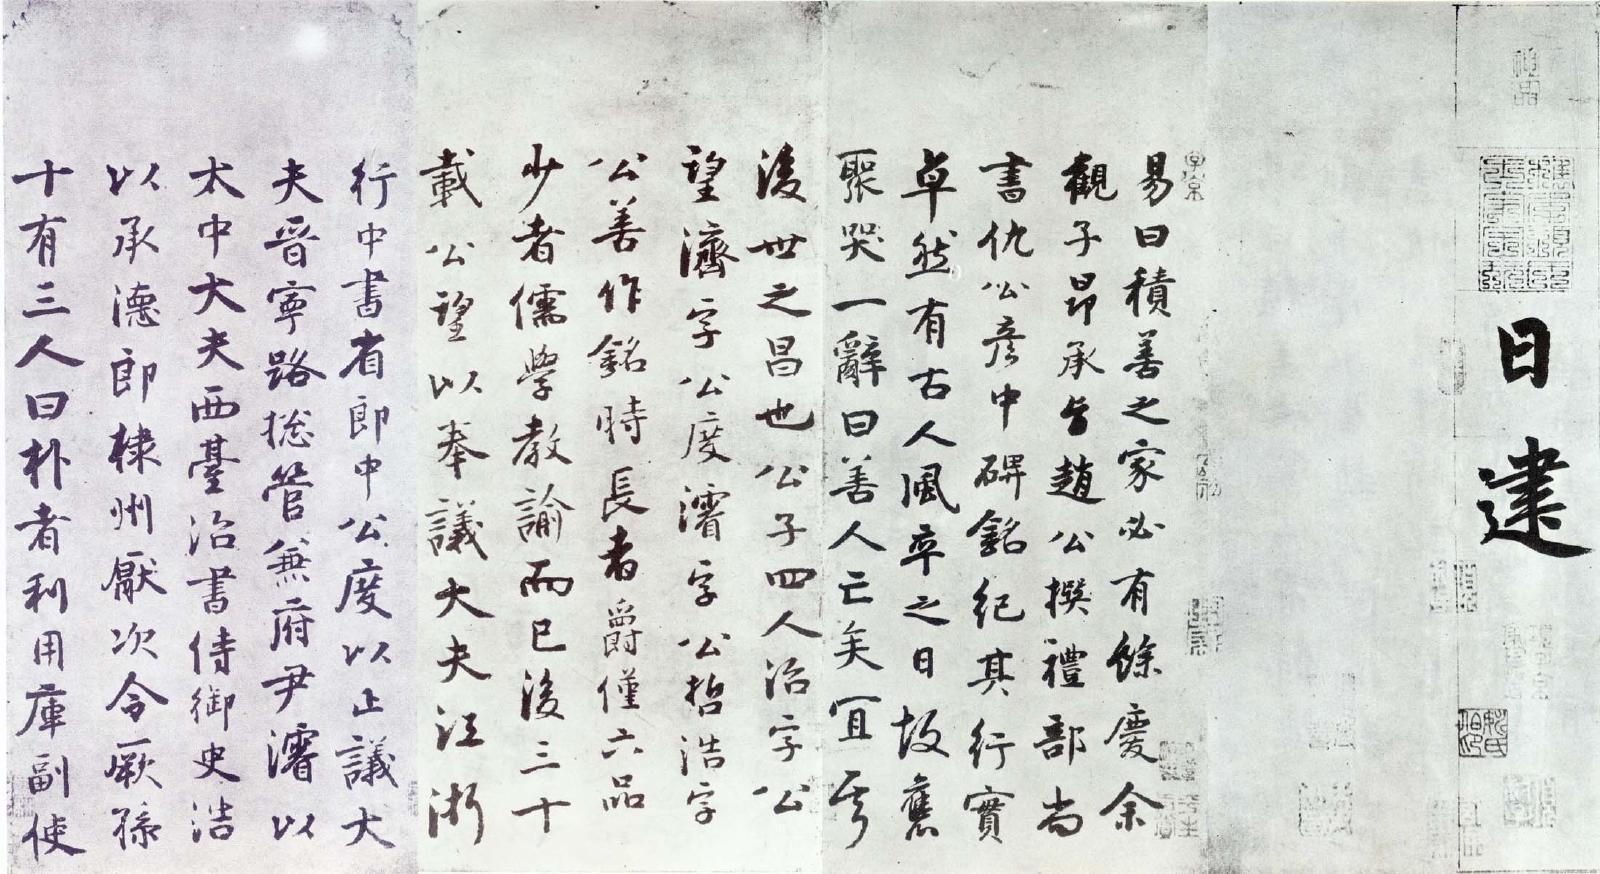 神品
日建
子京
易曰積善之家必有餘慶余
觀子昂承旨趙公撰禮部尚
書仇公彥中碑銘紀其行實
卓然有古人風卒之日故舊
聚哭一辭曰善人亡矣宜乎
後世之昌也公子四人治字公
望濟字公度濬字公哲浩字
公善作銘時長者爵僅六品
少者儒學教諭而已後三十
載公望以奉議大夫江浙
行中書省郎中公度以正議大
夫晉寧路総管兼府尹濬以
太中大夫西臺治書侍御史浩
以承德郎棣州厭次令厥孫
十有三人曰朴者利用庫副使